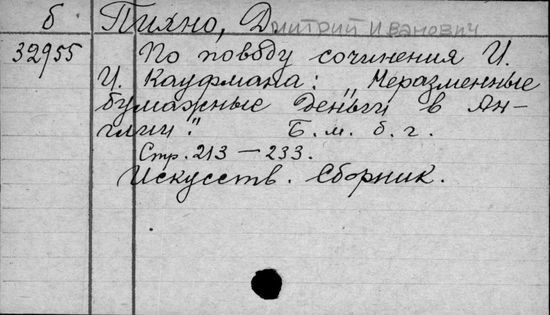 б Пихно, Дмитрий Иванович
32955 По поводу сочинения И.
И. Кауфмана: „Неразменные
бумажные деньги в Ан-
глии". Б. м. б. г.
Стр. 213 — 233.
Искусств. Сборник.